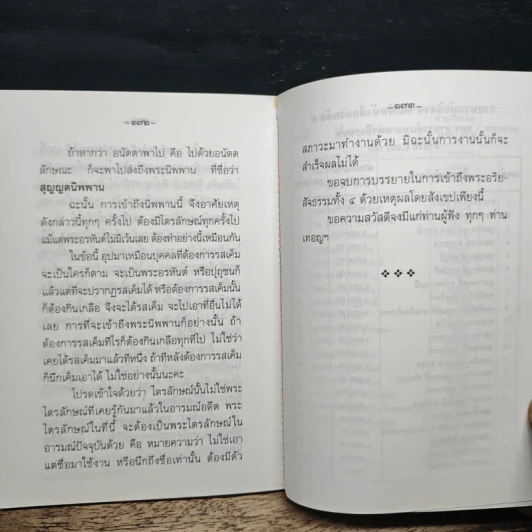 -๑๗๒-
ถ้าหากว่า อนัตตาพาไป คือ ไปด้วยอนัตต
ลักษณะ ก็จะพาไปส่งถึงพระนิพพาน ที่ชื่อว่า
สุญญตนิพพาน
ฉะนั้น การเข้าถึงพระนิพพานนี้ จึงอาศัยเหตุ
ดังกล่าวนี้ทุกๆ ครั้งไป ต้องมีไตรลักษณ์ทุกครั้งไป
แม้แต่พระอรหันต์ไม่มีเว้นเลย ต้องทำอย่างนี้เหมือนกัน
ในข้อนี้ อุปมาเหมือนบุคคลที่ต้องการรสเค็ม
จะเป็นใครก็ตาม จะเป็นพระอรหันต์ หรือปุถุชนก็
แล้วแต่ที่จะปรากฏรสเค็มได้ หรือต้องการรสเค็มนั้น
ก็ต้องกินเกลือ จึงจะได้รสเค็ม จะไปเอาที่อื่นไม่ได้
เลย การที่จะเข้าถึงพระนิพพานก็อย่างนั้น ถ้า
ต้องการรสเค็มทีไรก็ต้องกินเกลือทุกทีไป ไม่ใช่ว่า
เคยได้รสเค็มมาแล้วทีหนึ่ง ถ้าทีหลังต้องการรสเค็ม
ก็นึกเค็มเอาได้ ไม่ใช่อย่างนั้นนะคะ
โปรดเข้าใจด้วยว่า ไตรลักษณ์นั้นไม่ใช่พระ
ไตรลักษณ์ที่เคยรู้กันมาแล้วในอารมณ์อดีต พระ
ไตรลักษณ์ในที่นี้ จะต้องเป็นพระไตรลักษณ์ใน
อารมณ์ปัจจุบันด้วย คือ หมายความว่า ไม่ใช่เอา
แต่ชื่อมาใช้งาน หรือนึกถึงชื่อเท่านั้น ต้องมีตัว
-๑๗๓-
สภาวะมาทำงานด้วย มิฉะนั้นการงานนั้นก็จะ
สำเร็จผลไม่ได้
ขอจบการบรรยายในการเข้าถึงพระอริย-
สัจธรรมทั้ง ๔ ด้วยเหตุผลโดยสังเขปเพียงนี้
ขอความสวัสดีจงมีแก่ท่านผู้ฟัง ทุกๆ ท่าน
เทอญฯ